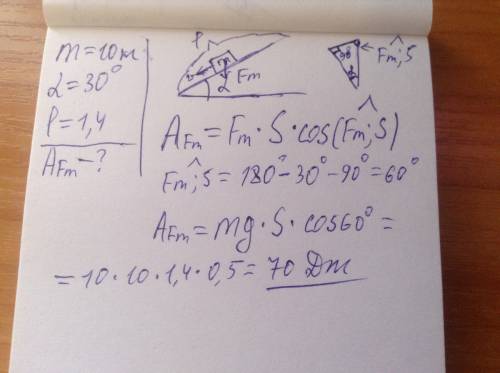 m = 10 кг
α = 30°
l = 1,4
A Fm - ?
l
m
α
Fm
90°
α
Fm^;S
A Fm = Fm · S · cos(Fm^;S)
Fm^;S = 180° - 30° - 90° = 60°
A Fm = mg · S · cos60° =
= 10 · 10 · 1,4 · 0,5 = 70 Dm